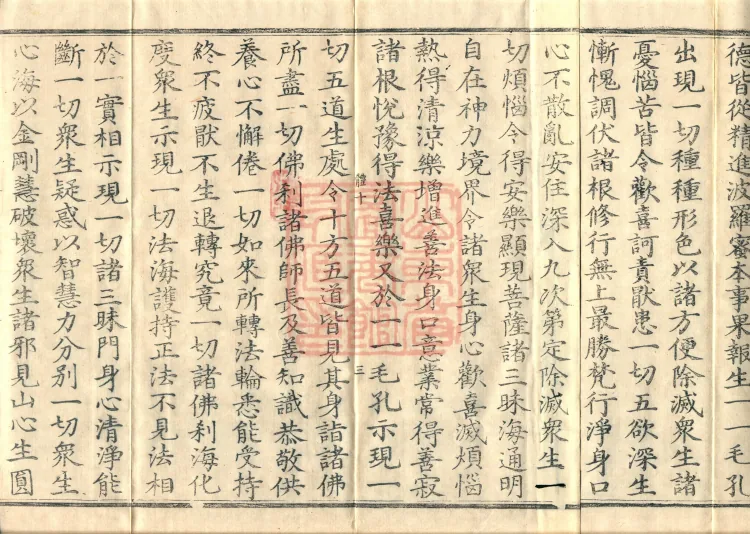 德皆從精進波羅蜜本事果報生一一毛孔
出現一切種種形色以諸方便除滅衆生諸
憂惱苦皆令歡喜訶責厭患一切五欲深生
慚愧調伏諸根修行無上最勝梵行淨身口
心不散亂安住深入九次第定除滅衆生一
切煩惱令得安樂顯現菩薩諸三昧海通明
自在神力境界令諸衆生身心歡喜滅煩惱
熱得清涼樂增進善法身口意業常得善寂
諸根悅豫得法喜樂又於一一毛孔示現一
禮十 三
切五道生處令十方五道皆見其身詣諸佛
所盡一切佛刹諸佛師長及善知識恭敬供
養心不懈倦一切如來所轉法輪悉能受持
終不疲厭不生退轉究竟一切諸佛刹海化
度衆生示現一切法海護持正法不見法相
於一實相示現一切諸三昧門身心清淨能
斷一切衆生疑惑以智慧力分別一切衆生
心海以金剛慧破壞衆生諸邪見山心生圓